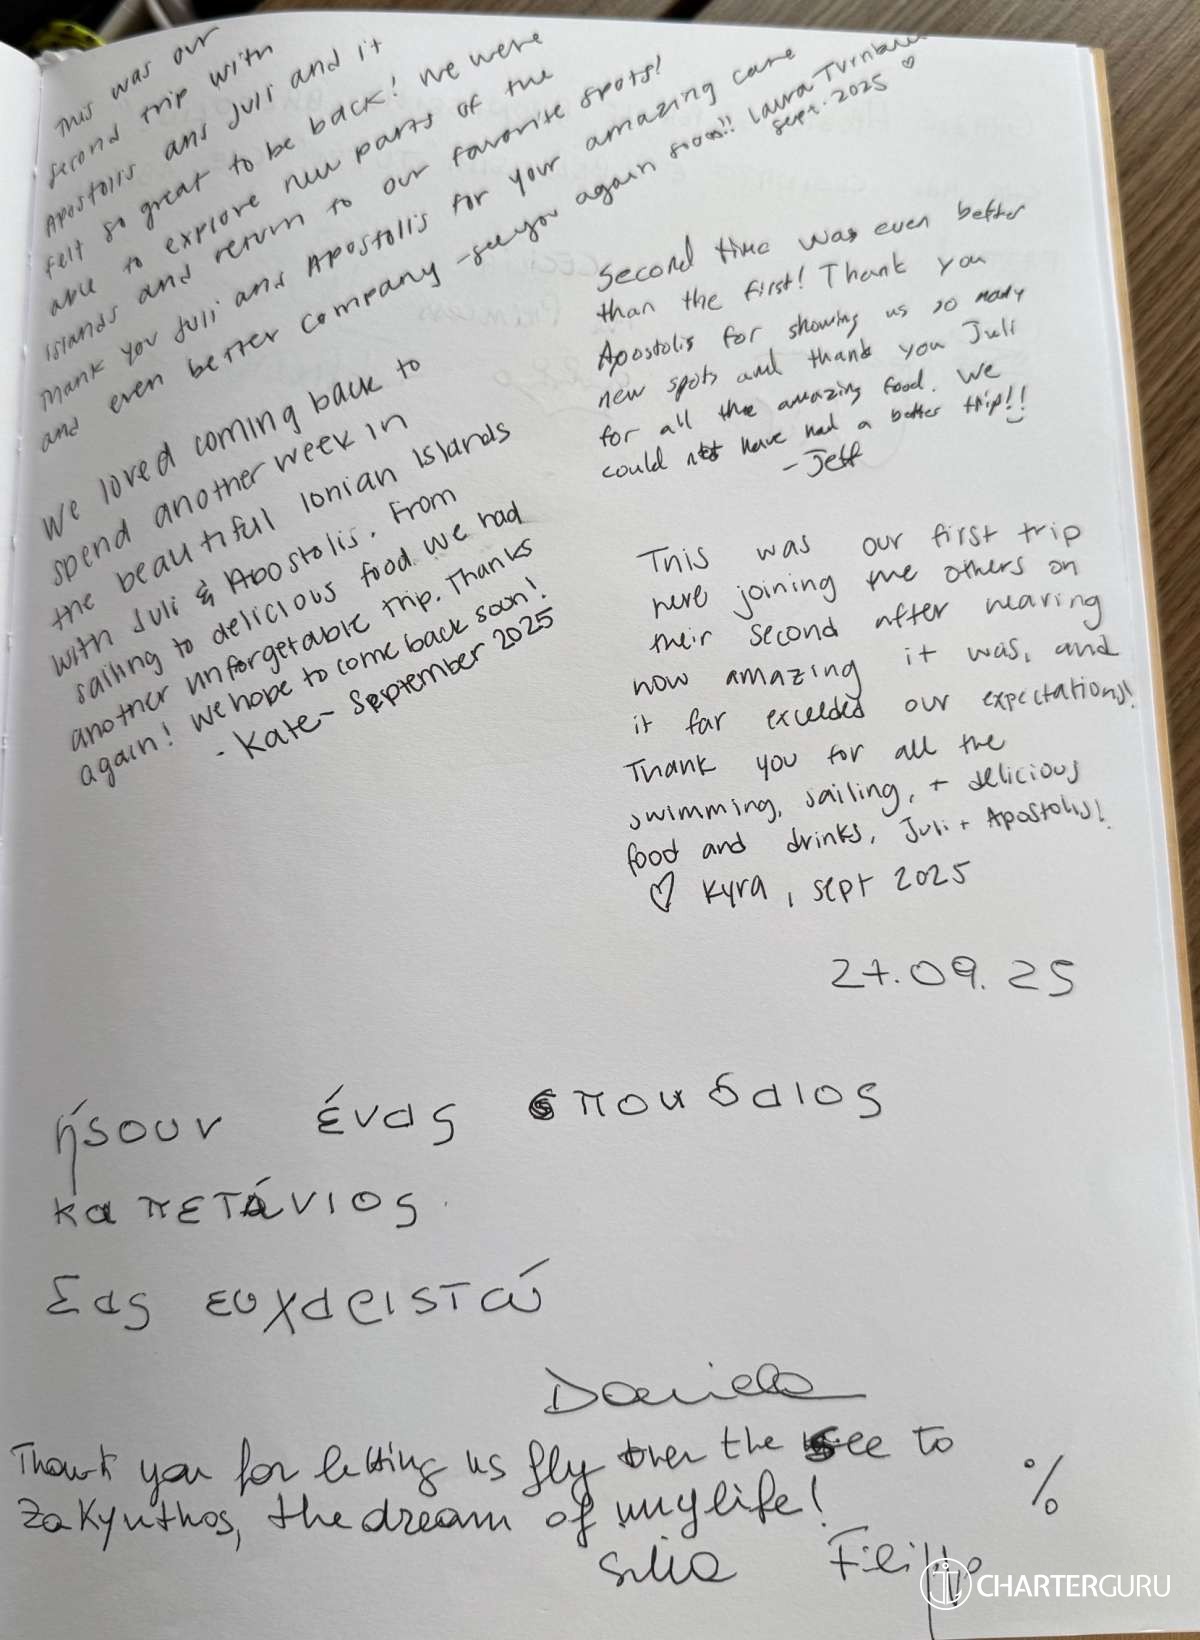 This was our
second trip with
Apostolis and Juli and it
felt so great to be back! We were
able to explore new parts of the
islands and return to our favorite spots!
Thank you Juli and Apostolis for your amazing care
and even better company - see you again soon!! Laura Turnbull
Sept. 2025 ♡
We loved coming back to
spend another week in
the beautiful Ionian Islands
with Juli & Apostolis. From
sailing to delicious food we had
another unforgetable trip. Thanks
again! We hope to come back soon!
- Kate - September 2025
Second time was even better
than the first! Thank you
Apostolis for showing us so many
new spots and thank you Juli
for all the amazing food. We
could not have had a better trip!!
- Jeff
This was our first trip
here joining the others on
their second after hearing
how amazing it was, and
it far exceeded our expectations!
Thank you for all the
swimming, sailing, + delicious
food and drinks, Juli + Apostolis!
♡ Kyra, sept 2025
27.09.25
ήσουν ένας σπουδαιος
καπετάνιος
Σας ευχαριστώ
Daniela
Thank you for letting us fly over the see to
Zakynthos, the dream of my life!
%
Silia Filippo
CHARTERGURU